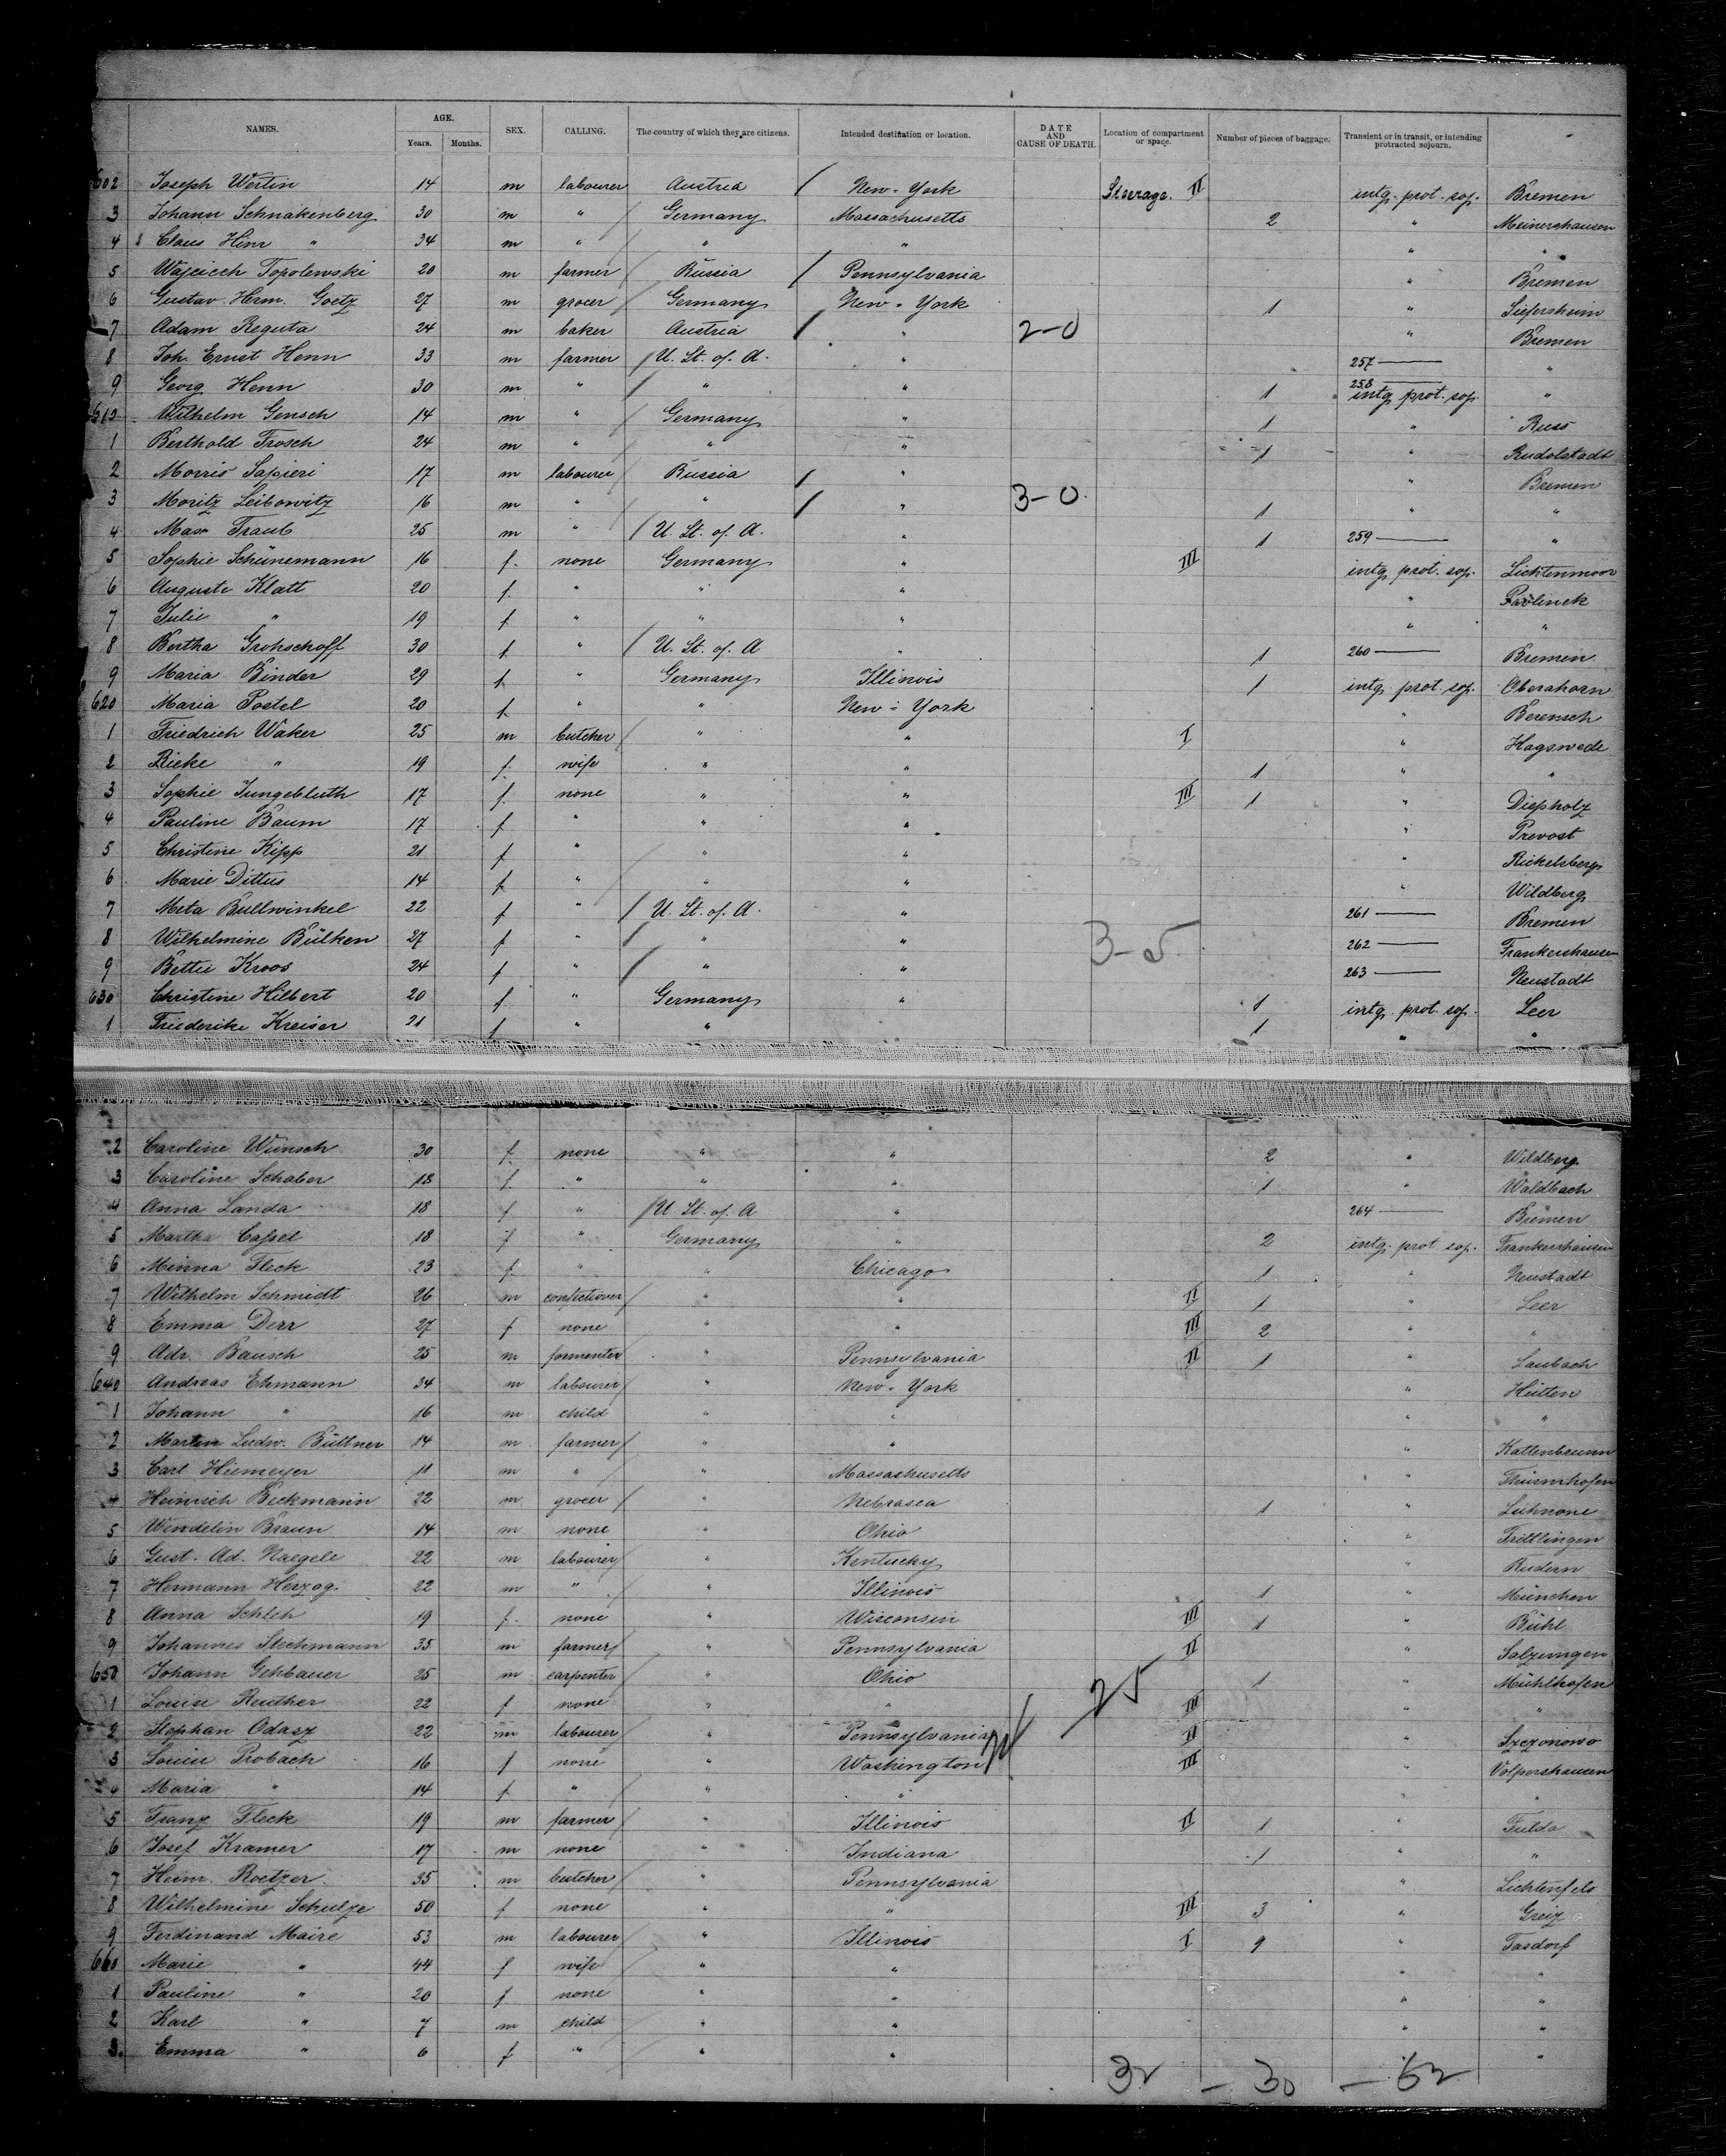 NAMES. AGE. Years. Months. SEX. CALLING. The country of which they are citizens. Intended destination or location. DATE AND CAUSE OF DEATH. Location of compartment or space. Number of pieces of baggage. Transient or in transit, or intending protracted sojourn.
602 Joseph Wertin 14 m labourer Austria New-York Steerage. II intg. prot. soj. Bremen
3 Johann Schnakenberg 30 m " Germany Massachusetts 2 " Meinershausen
4 Claus Hinr " 34 m " " " " "
5 Wojciech Topolewski 20 m farmer Russia Pennsylvania " Bremen
6 Gustav Herm. Goetz 27 m grocer Germany New-York 1 " Siefersheim
7 Adam Reguta 24 m baker Austria " 2-0 " Bremen
8 Joh. Ernst Henn 33 m farmer U. St. of. A. " 257 "
9 Georg Henn 30 m " " " 1 258 "
610 Wilhelm Gensch 14 m " Germany " 1 intg. prot. soj. Russ
1 Berthold Frosch 24 m " " " 1 " Rudolstadt
2 Morris Sapieri 17 m labourer Russia " " Bremen
3 Moritz Leibowitz 16 m " " " 3-0. 1 " "
4 Max Traub 25 m " U. St. of. A. " 1 259 "
5 Sophie Schünemann 16 f. none Germany " III intg. prot. soj. Lichtenmoor
6 Auguste Klatt 20 f. " " " "
7 Julie " 19 f. " " " " "
8 Bertha Grohschoff 30 f. " U. St. of. A " 1 260 Bremen
9 Maria Binder 29 f. " Germany Illinois 1 intg. prot. soj. Oberahorn
620 Maria Postel 20 f. " " New-York " Berensch
1 Friedrich Waker 25 m butcher " " I " Hagswede
2 Rieke " 19 f. wife " " 1 " "
3 Sophie Jungebluth 17 f. none " " III 1 " Diepholz
4 Pauline Baum 17 f " " " " Prevost
5 Christine Kipp 21 f " " " " Rickelsberg
6 Marie Dittus 14 f. " " " " Wildberg
7 Meta Bullwinkel 22 f " U. St. of. A. " 261 Bremen
8 Wilhelmine Bülken 27 f " " " 3-5 262 Frankershausen
9 Bettie Kroos 24 f " " " 263 Neustadt
630 Christine Hilbert 20 f " Germany " 1 intg. prot. soj. Leer
1 Friederike Kreiser 21 f " " " 1 " "
2 Caroline Wünsch 30 f. none " " 2 " Wildberg
3 Caroline Schaber 18 f. " " " 1 " Waldbach
4 Anna Landa 18 f " U. St. of. A " 264 Bremen
5 Martha Cassel 18 f " Germany " 2 intg. prot. soj. Frankershausen
6 Minna Fleck 23 f. " " Chicago 1 " Neustadt
7 Wilhelm Schmidt 26 m confectioner " " II 1 " Leer
8 Emma Derr 27 f none " " III 2 " "
9 Adr. Bausch 25 m formenter " Pennsylvania II 1 " Laubach
640 Andreas Ehmann 34 m labourer " New-York " Hütten
1 Johann " 16 m child " " " "
2 Martin Ludw. Büttner 14 m farmer " " " Kattenbrunn
3 Carl Hiemeyer 11 m " " Massachusetts " Thürnhofen
4 Heinrich Beckmann 22 m grocer " Nebrasca 1 "
5 Wendelin Braun 14 m none " Ohio " Frittlingen
6 Gust. Ad. Naegele 22 m labourer " Kentucky " Rudern
7 Hermann Herzog 22 m " " Illinois 1 " München
8 Anna Schleh 19 f. none " Wisconsin III 1 " Bühl
9 Johannes Stechmann 35 m farmer " Pennsylvania II " Salzungen
650 Johann Gehbauer 25 m carpenter " Ohio 1 " Mühlhofen
1 Louise Reuther 22 f none " " 25 III " "
2 Stephan Odasz 22 m labourer " Pennsylvania II " Szczonowo
3 Louise Probach 16 f none " Washington III " Volpershausen
4 Maria " 14 f. " " " " "
5 Franz Fleck 19 m farmer " Illinois II 1 " Fulda
6 Josef Kramer 17 m none " Indiana 1 " "
7 Heinr. Roetzer 35 m butcher " Pennsylvania " Lichtenfels
8 Wilhelmine Schulze 50 f none " " III 3 " Greiz
9 Ferdinand Maire 53 m labourer " Illinois I 9 " Tasdorf
660 Marie " 44 f wife " " " "
1 Pauline " 20 f none " " " "
2 Karl " 7 m child " " " "
3. Emma " 6 f " " " "
32 - 30 - 62